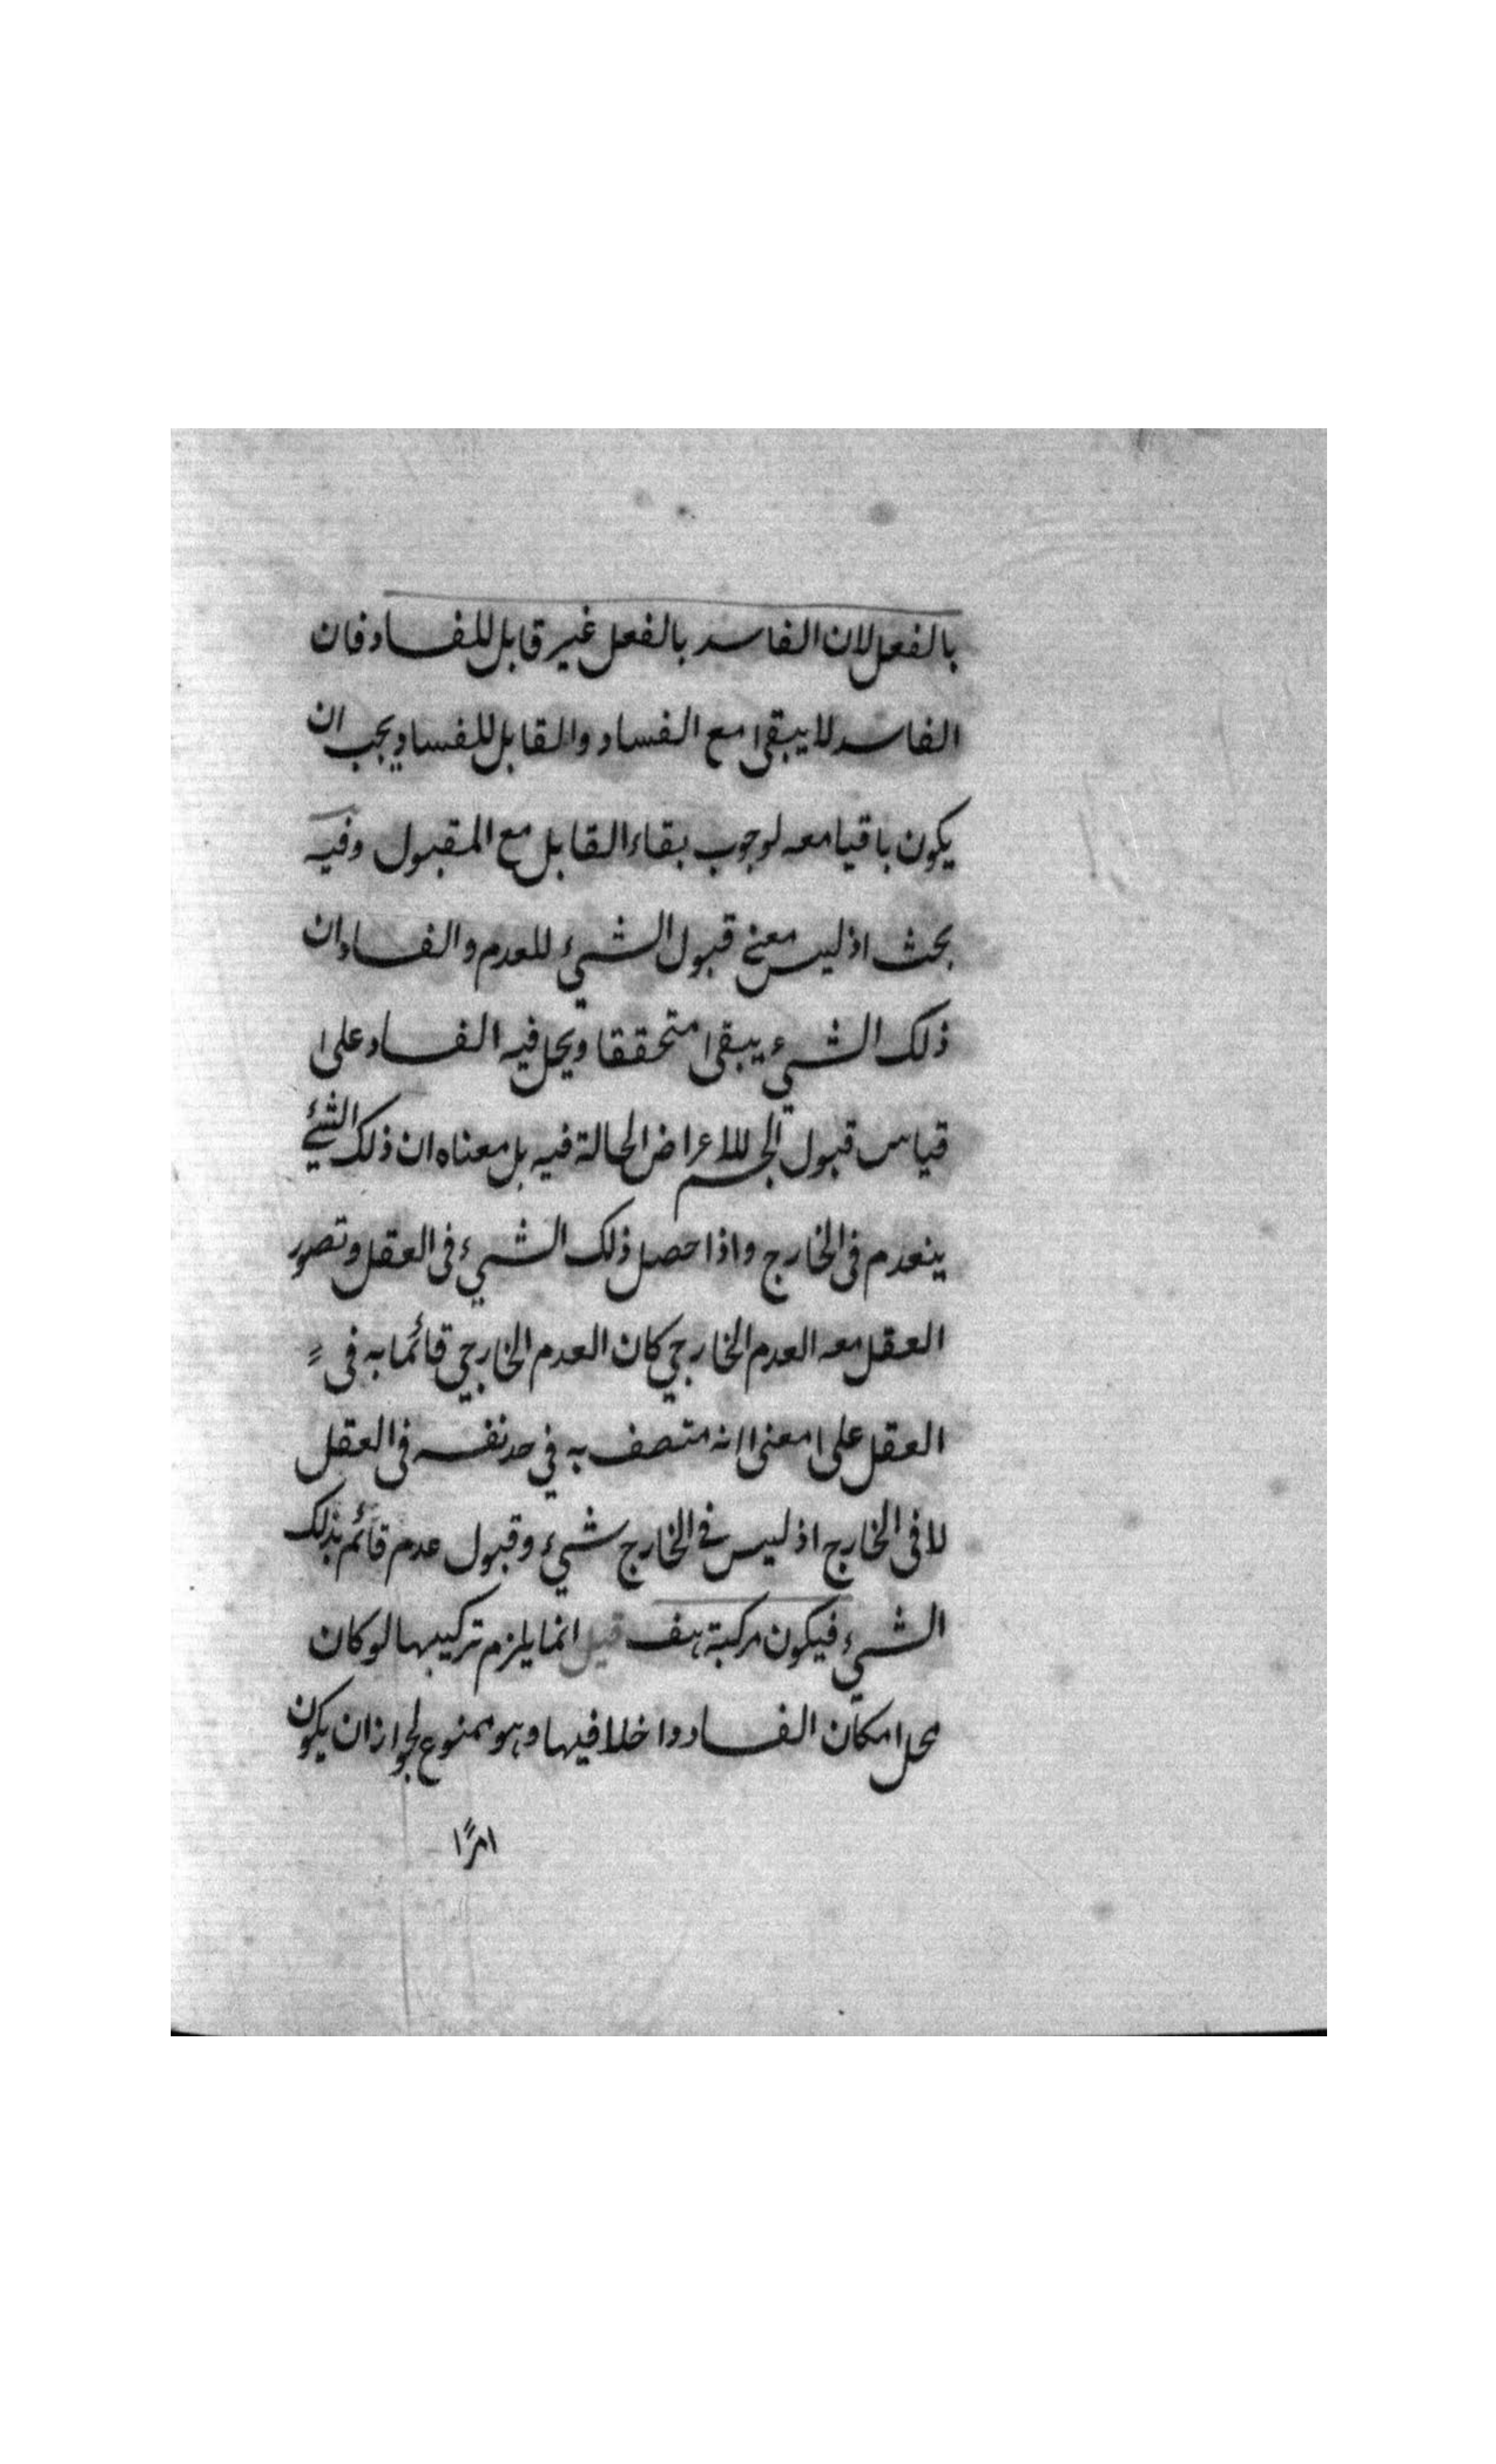 بالفعل لان الفاسد بالفعل غير قابل للفساد فان
الفاسد لا يبقى مع الفساد والقابل للفساد يجب ان
يكون باقيا معه لوجوب بقاء القابل مع المقبول وفيه
بحث اذ ليس معنى قبول الشيء للعدم والفساد ان
ذلك الشيء يبقى متحققا ويحل فيه الفساد على
قياس قبول الجسم للاعراض الحالة فيه بل معناه ان ذلك الشيء
ينعدم فى الخارج واذا حصل ذلك الشيء فى العقل وتصور
العقل معه العدم الخارجي كان العدم الخارجي قائما به فى
العقل على معنى انه متصف به في حد نفسه فى العقل
لا فى الخارج اذ ليس فى الخارج شيء وقبول عدم قائم بذلك
الشيء فيكون مركبة هف قيل انما يلزم تركيبها لو كان
محل امكان الفساد داخلا فيها وهو ممنوع لجواز ان يكون
امرًا